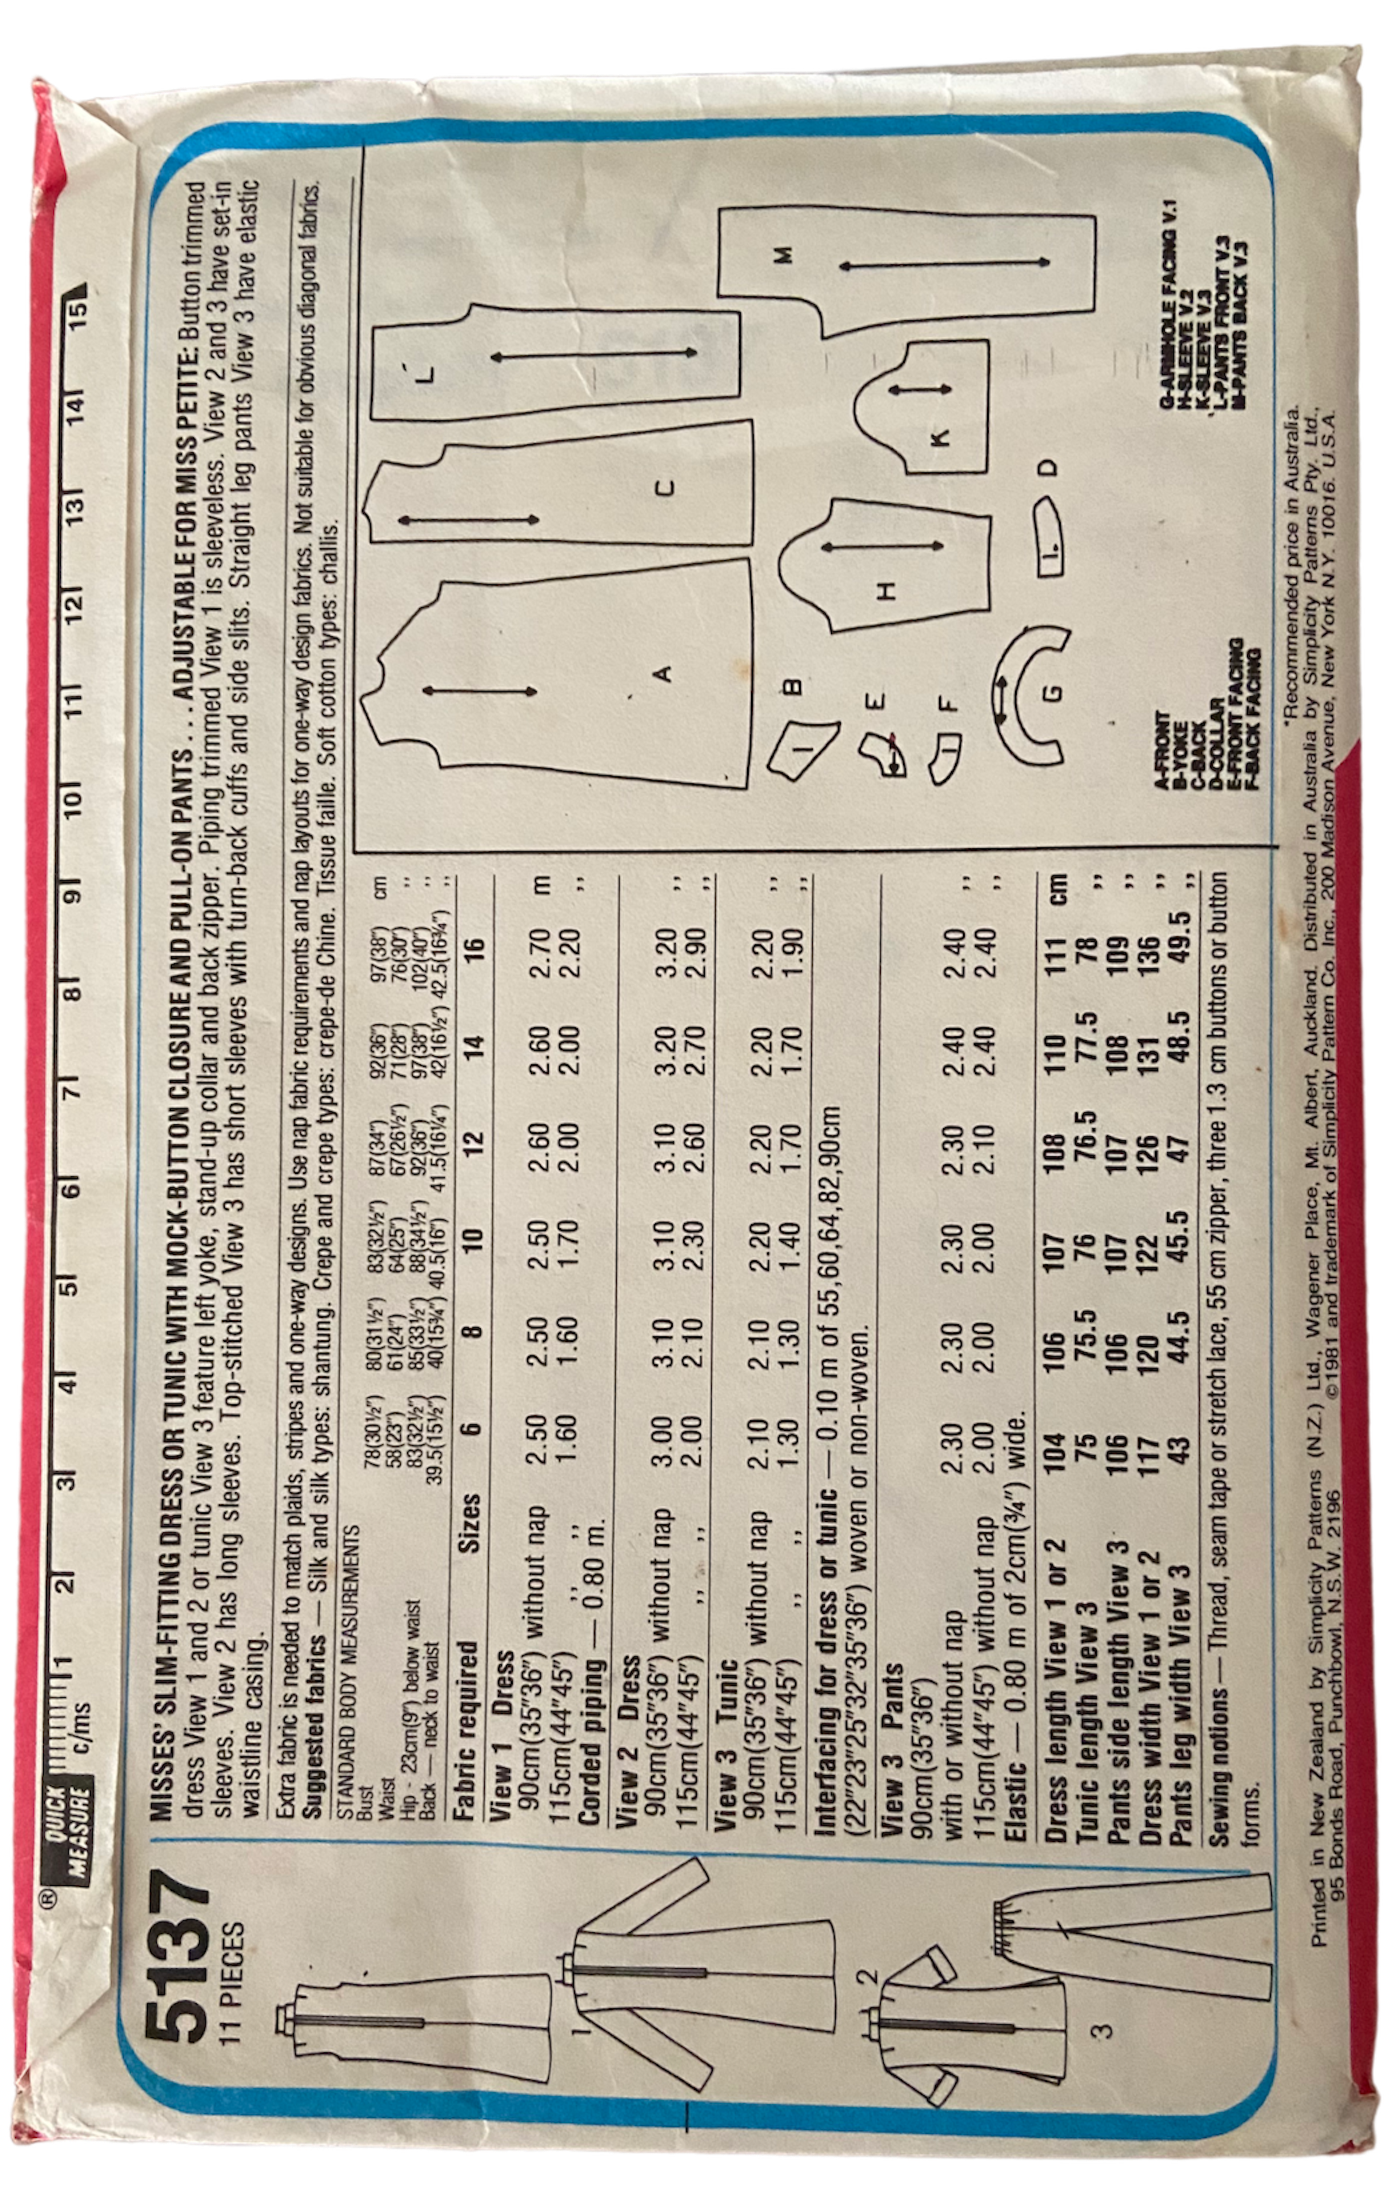 ® QUICK
MEASURE c/ms
1 2 3 4 5 6 7 8 9 10 11 12 13 14 15
5137
11 PIECES
MISSES' SLIM-FITTING DRESS OR TUNIC WITH MOCK-BUTTON CLOSURE AND PULL-ON PANTS . . . ADJUSTABLE FOR MISS PETITE: Button trimmed
dress View 1 and 2 or tunic View 3 feature left yoke, stand-up collar and back zipper. Piping trimmed View 1 is sleeveless. View 2 and 3 have set-in
sleeves. View 2 has long sleeves. Top-stitched View 3 has short sleeves with turn-back cuffs and side slits. Straight leg pants View 3 have elastic
waistline casing.
Extra fabric is needed to match plaids, stripes and one-way designs. Use nap fabric requirements and nap layouts for one-way design fabrics. Not suitable for obvious diagonal fabrics.
Suggested fabrics — Silk and silk types: shantung. Crepe and crepe types: crepe-de Chine. Tissue faille. Soft cotton types: challis.
STANDARD BODY MEASUREMENTS
Bust 78(30½") 80(31½") 83(32½") 87(34") 92(36") 97(38") cm
Waist 58(23") 61(24") 64(25") 67(26½") 71(28") 76(30") ,,
Hip - 23cm(9") below waist 83(32½") 85(33½") 88(34½") 92(36") 97(38") 102(40") ,,
Back — neck to waist 39.5(15½") 40(15¾") 40.5(16") 41.5(16¼") 42(16½") 42.5(16¾") ,,
Fabric required Sizes 6 8 10 12 14 16
View 1 Dress
90cm(35"36") without nap 2.50 2.50 2.50 2.60 2.60 2.70 m
115cm(44"45") ,, ,, 1.60 1.60 1.70 2.00 2.00 2.20 ,,
Corded piping — 0.80 m.
View 2 Dress
90cm(35"36") without nap 3.00 3.10 3.10 3.10 3.20 3.20 ,,
115cm(44"45") ,, ,, 2.00 2.10 2.30 2.60 2.70 2.90 ,,
View 3 Tunic
90cm(35"36") without nap 2.10 2.10 2.20 2.20 2.20 2.20 ,,
115cm(44"45") ,, ,, 1.30 1.30 1.40 1.70 1.70 1.90 ,,
Interfacing for dress or tunic — 0.10 m of 55,60,64,82,90cm
(22"23"25"32"35"36") woven or non-woven.
View 3 Pants
90cm(35"36")
with or without nap 2.30 2.30 2.30 2.30 2.40 2.40 ,,
115cm(44"45") without nap 2.00 2.00 2.00 2.10 2.40 2.40 ,,
Elastic — 0.80 m of 2cm(¾") wide.
Dress length View 1 or 2 104 106 107 108 110 111 cm
Tunic length View 3 75 75.5 76 76.5 77.5 78 ,,
Pants side length View 3 106 106 107 107 108 109 ,,
Dress width View 1 or 2 117 120 122 126 131 136 ,,
Pants leg width View 3 43 44.5 45.5 47 48.5 49.5 ,,
Sewing notions — Thread, seam tape or stretch lace, 55 cm zipper, three 1.3 cm buttons or button
forms.
1
2
3
A
C
L
M
B
E
F
G
H
K
D
A-FRONT
B-YOKE
C-BACK
D-COLLAR
E-FRONT FACING
F-BACK FACING
G-ARMHOLE FACING V.1
H-SLEEVE V.2
K-SLEEVE V.3
L-PANTS FRONT V.3
M-PANTS BACK V.3
*Recommended price in Australia.
Printed in New Zealand by Simplicity Patterns (N.Z.) Ltd., Wagener Place, Mt. Albert, Auckland. Distributed in Australia by Simplicity Patterns Pty. Ltd.,
95 Bonds Road, Punchbowl, N.S.W. 2196 ©1981 and trademark of Simplicity Pattern Co. Inc., 200 Madison Avenue, New York N.Y. 10016. U.S.A.